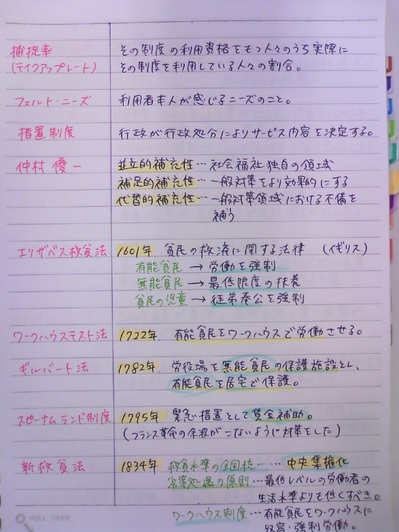 捕捉率 その制度の利用資格をもつ人々のうち実際に
(テイクアップレート) その制度を利用している人々の割合。
フェルト・ニーズ 利用者本人が感じるニーズのこと。
措置制度 行政が行政処分によりサービス内容を決定する。
仲村優一 並立的補充性…社会福祉独自の領域
補足的補充性…一般対策をより効果的にする
代替的補充性…一般対策領域における不備を
補う
エリザベス救貧法 1601年 貧民の救済に関する法律 (イギリス)
有能貧民 → 労働を強制
無能貧民 → 最低限度の扶養
貧民の児童 → 徒弟奉公を強制
ワークハウステスト法 1722年 有能貧民をワークハウスで労働させる。
ギルバート法 1782年 労役場を無能貧民の保護施設とし、
有能貧民を居宅で保護。
スピーナムランド制度 1795年 緊急措置として賃金補助。
(フランス革命の余波がこないように対策をした)
新救貧法 1834年 救貧水準の全国統一…中央集権化
劣等処遇の原則…最低レベルの労働者の
生活水準よりも低くすべき。
ワークハウス制度…有能貧民をワークハウスに
収容・強制労働。
PULL OPEN